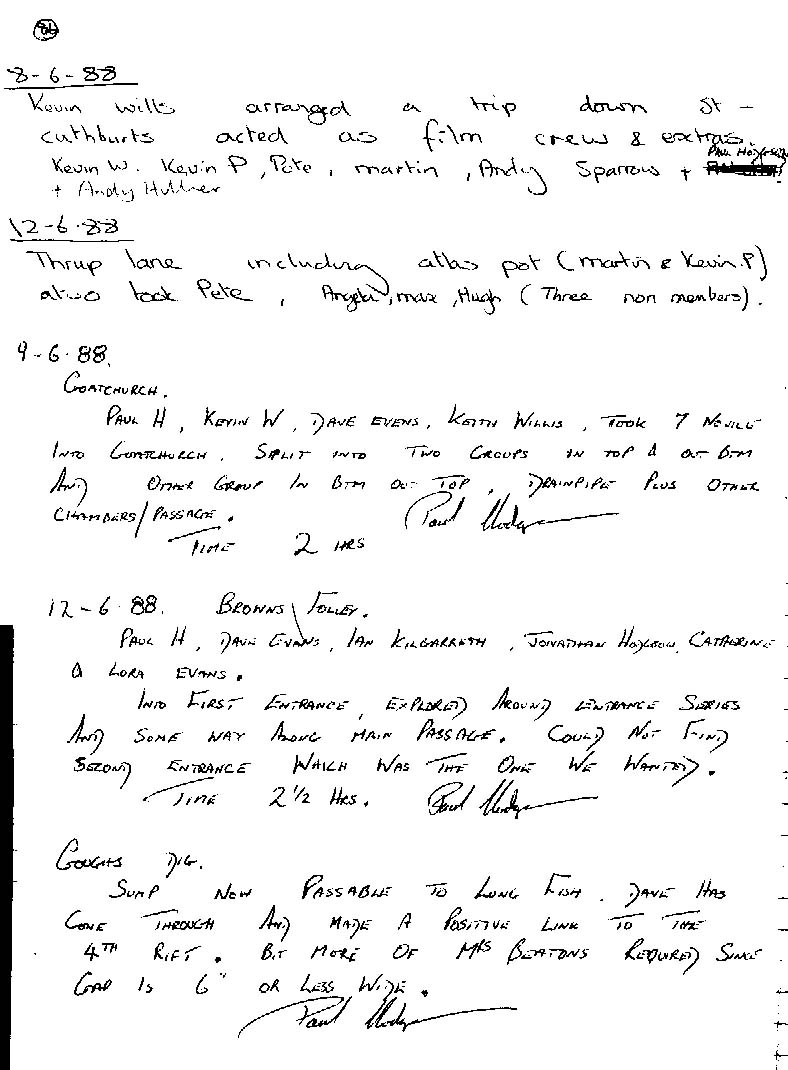 86
8-6-88
Kevin Wills arranged a trip down St -
cuthburts acted as film crew & extras.
Kevin W. Kevin P, Pete, martin, Andy Sparrow + Paul Hodgson
+ Andy Hutner
12-6-88
Thrup lane including atlas pot (martin & Kevin.P)
also took Pete, Angela, max, Hugh (Three non members).
9-6-88.
Goatchurch.
Paul H, Kevin W, Dave Evens, Keith Willis, Took 7 Novice
Into Goatchurch. Split into Two Groups in top & out Btm
And Other Group In Btm out Top. Drainpipe Plus Other
Chambers/Passage. Paul Hodgson
Time 2 Hrs
12-6-88. Browns Folley.
Paul H, Dave Evans, Ian Kilgarreth, Jonathan Hodgson, Catherine
& Lora Evans.
Into First Entrance, Explored Around Entrance Series
And Some Way Along Main Passage. Could Not Find
Second Entrance Which Was The One We Wanted.
Time 2 1/2 Hrs. Paul Hodgson
Goughs Dig.
Sump Now Passable To Lung Fish. Dave Has
Gone Through And Made A Positive Link To The
4th Rift. Bit More Of Mrs Beatons Required Since
Gap Is 6" or Less Wide.
Paul Hodgson